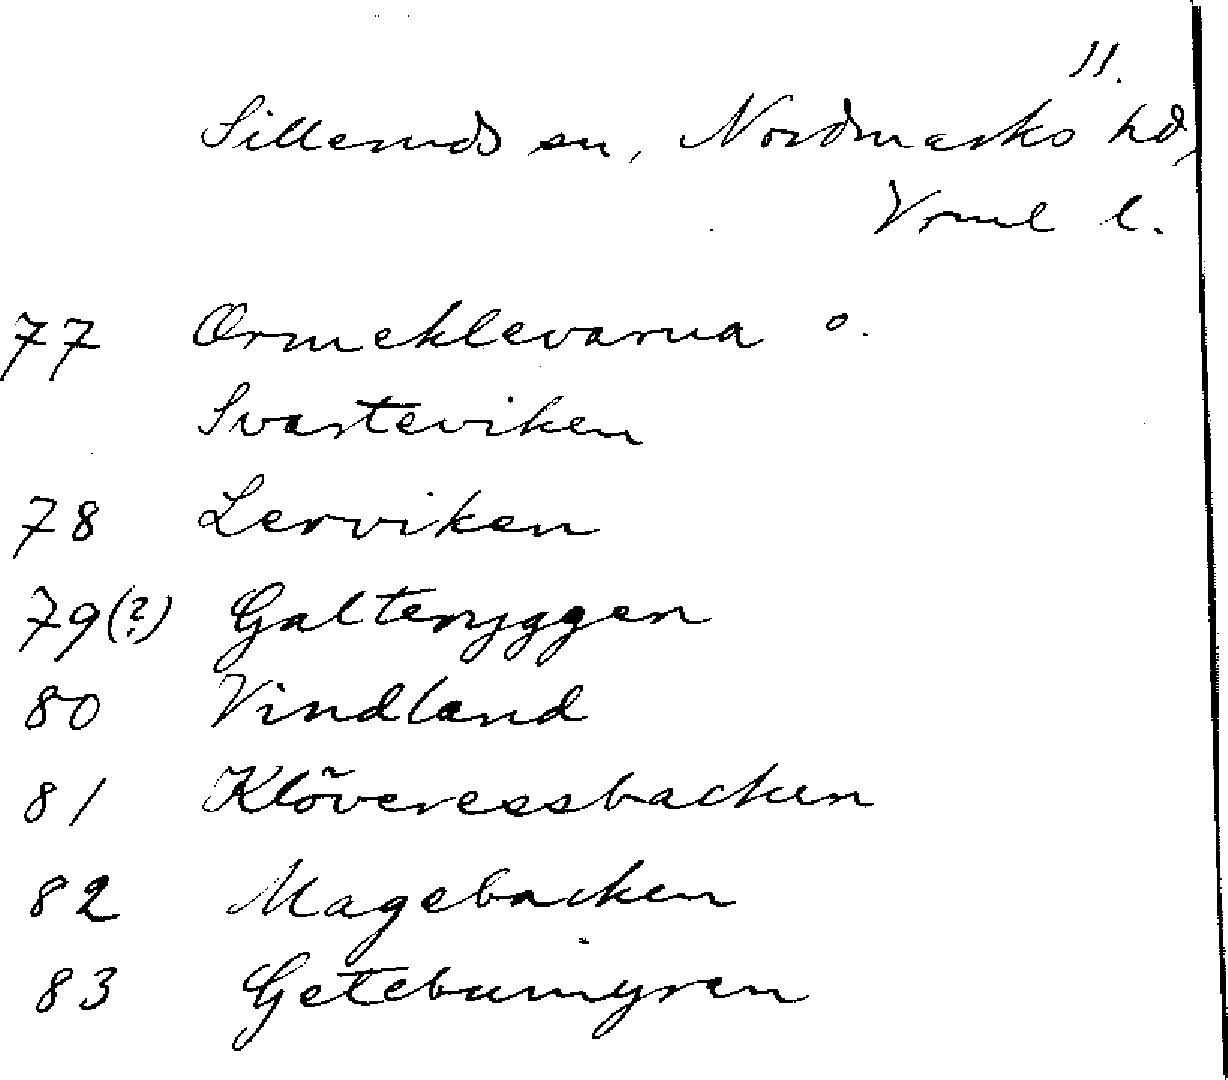 11.
Silleruds sn, Nordmarks hd,
Vrml l.
77 Ormeklevarna o.
Svarteviken
78 Lerviken
79(?) Galteryggen
80 Vindland
81 Klöveressbacken
82 Magebacken
83 Getebumyren